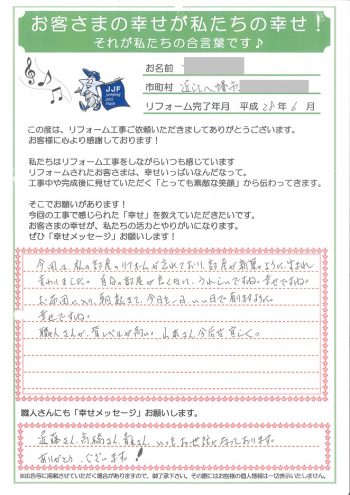 お客さまの幸せが私たちの幸せ!
それが私たちの合言葉です♪
お名前
市町村 近江八幡市
リフォーム完了年月 平成 28年 6月
JJF
この度は、リフォーム工事ご依頼いただきましてありがとうございます。
お客様に心より感謝しております!
私たちはリフォーム工事をしながらいつも感じています
リフォームされたお客さまは、幸せいっぱいなんだなって。
工事中や完成後に見せていただく「とっても素敵な笑顔」から伝わってきます。
そこでお願いがあります!
今回の工事で感じられた「幸せ」を教えていただきたいです。
お客さまの幸せが、私たちの活力とやりがいになります。
ぜひ「幸せメッセージ」お願いします!
今回は、私の部屋のリフォームが
部屋が新築のように生まれ
変わりました。自分の部屋が
うれしいですね。幸せですね。
お風呂に入り、
今日も一日、いい日で
幸せですね。
職人さんが、皆レベルが高い。
さん今后も宜しく。
職人さんにも「幸せメッセージ」お願いします。
近藤さん、高橋さん、
さん、いつもお世話になっております。
ありがとうございます!
※広告等に掲載させていただく場合がありますので、御了承下さい。その際にはお客様の個人情報は一切表示いたしません。